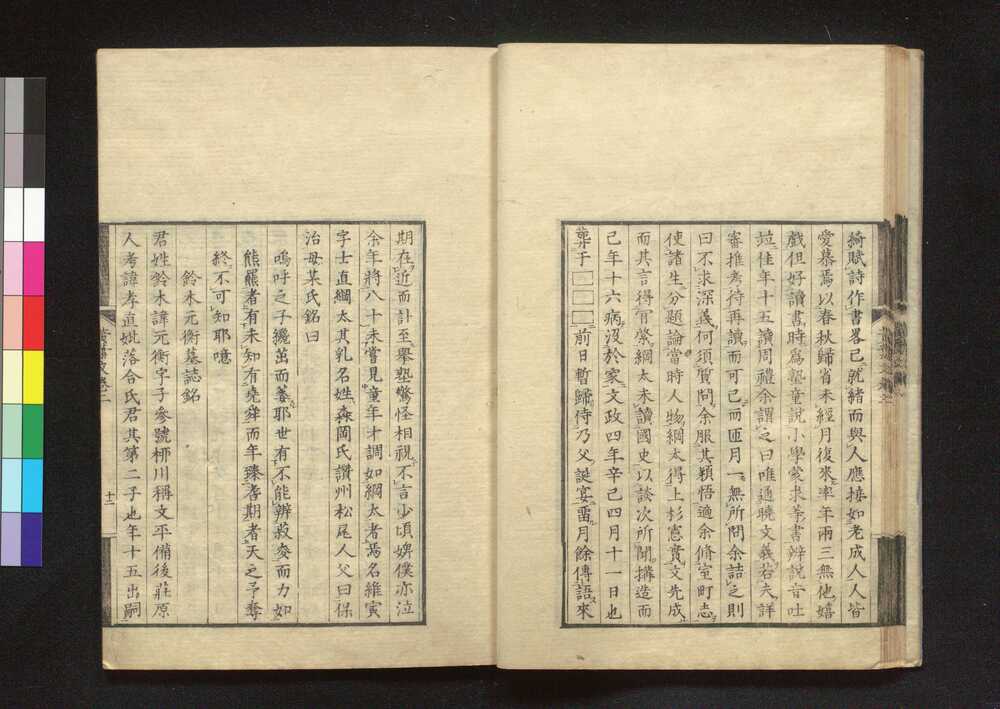 摛賦詩作書畧已就緒而與人應接如老成人人皆
愛慕焉以春秋歸省未經月復來率年兩三無他嬉
戲但好讀書時爲塾童說小學蒙求等書辨說音吐
竝佳年十五讀周禮余謂之曰唯通曉文義若夫詳
審推考待再讀而可已而匝月一無所問余詰之則
曰不求深義何須質問余服其穎悟適余脩室町志
使諸生分題論當時人物綱太得上杉憲實文先成
而其言得肯綮綱太未讀國史以談次所聞搆造而
已年十六病沒於家文政四年辛巳四月十一日也
葬于□□□前日暫歸侍乃父誕宴畱月餘傳語來
期在近而計至擧塾驚怪相視不言少頃婢僕亦泣
余年將八十未嘗見童年才調如綱太者焉名維寅
字士直綱太其乳名姓森岡氏讚州松尾人父曰保
治母某氏銘曰
嗚呼之子纔茁而萎耶世有不能辨菽麥而力如
熊羆者有未知有堯舜而年臻耆期者天之予奪
終不可知耶噫
鈴木元衡墓誌銘
君姓鈴木諱元衡字子參號栁川稱文平備後莊原
人考諱孝直妣落合氏君其第二子也年十五出嗣
十二